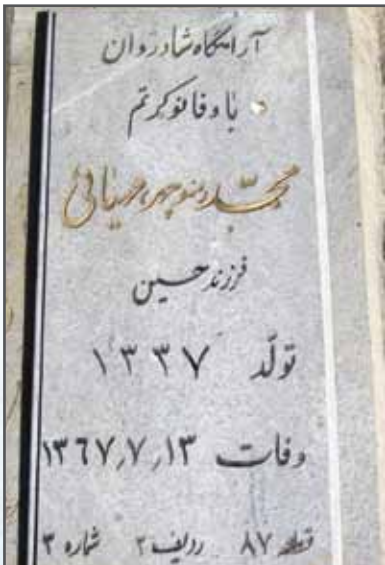 آرامگاه شادروان
با وفا نوکرتم
محمّد (منوچهر)
فرزند حسین
تولّد ۱۳۳۷
وفات ۱۳٦۷٫۷٫۱۳
قطعه ۸۷ ردیف ۲ شماره ۳